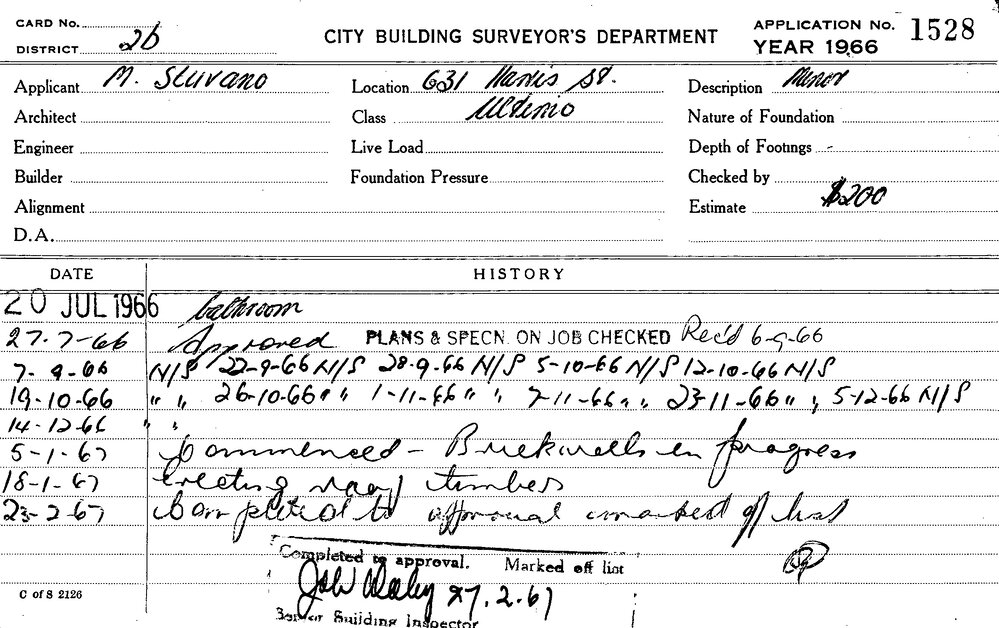 CARD No.
DISTRICT 2b
CITY BUILDING SURVEYOR'S DEPARTMENT
APPLICATION No. 1528
YEAR 1966
Applicant M. Sluvano Location 631 Harris St. Description Minor
Architect Class Ultimo Nature of Foundation
Engineer Live Load Depth of Footings -
Builder Foundation Pressure Checked by
Alignment Estimate $200
D.A.
DATE HISTORY
20 JUL 1966 bathroom
27-7-66 Approved PLANS & SPECN. ON JOB CHECKED Rec'd 6-9-66
7-9-66 N/S 22-9-66 N/S 28-9-66 N/S 5-10-66 N/S 12-10-66 N/S
19-10-66 " " 26-10-66 " " 1-11-66 " " 7-11-66 " " 23-11-66 " " 5-12-66 N/S
14-12-66 " "
5-1-67 Commenced - Brickwalls in progress
18-1-67 Erecting roof timbers
23-2-67 Completed to approval marked off list
Completed to approval. Marked off list
27.2.67
C of S 2126
Senior Building Inspector